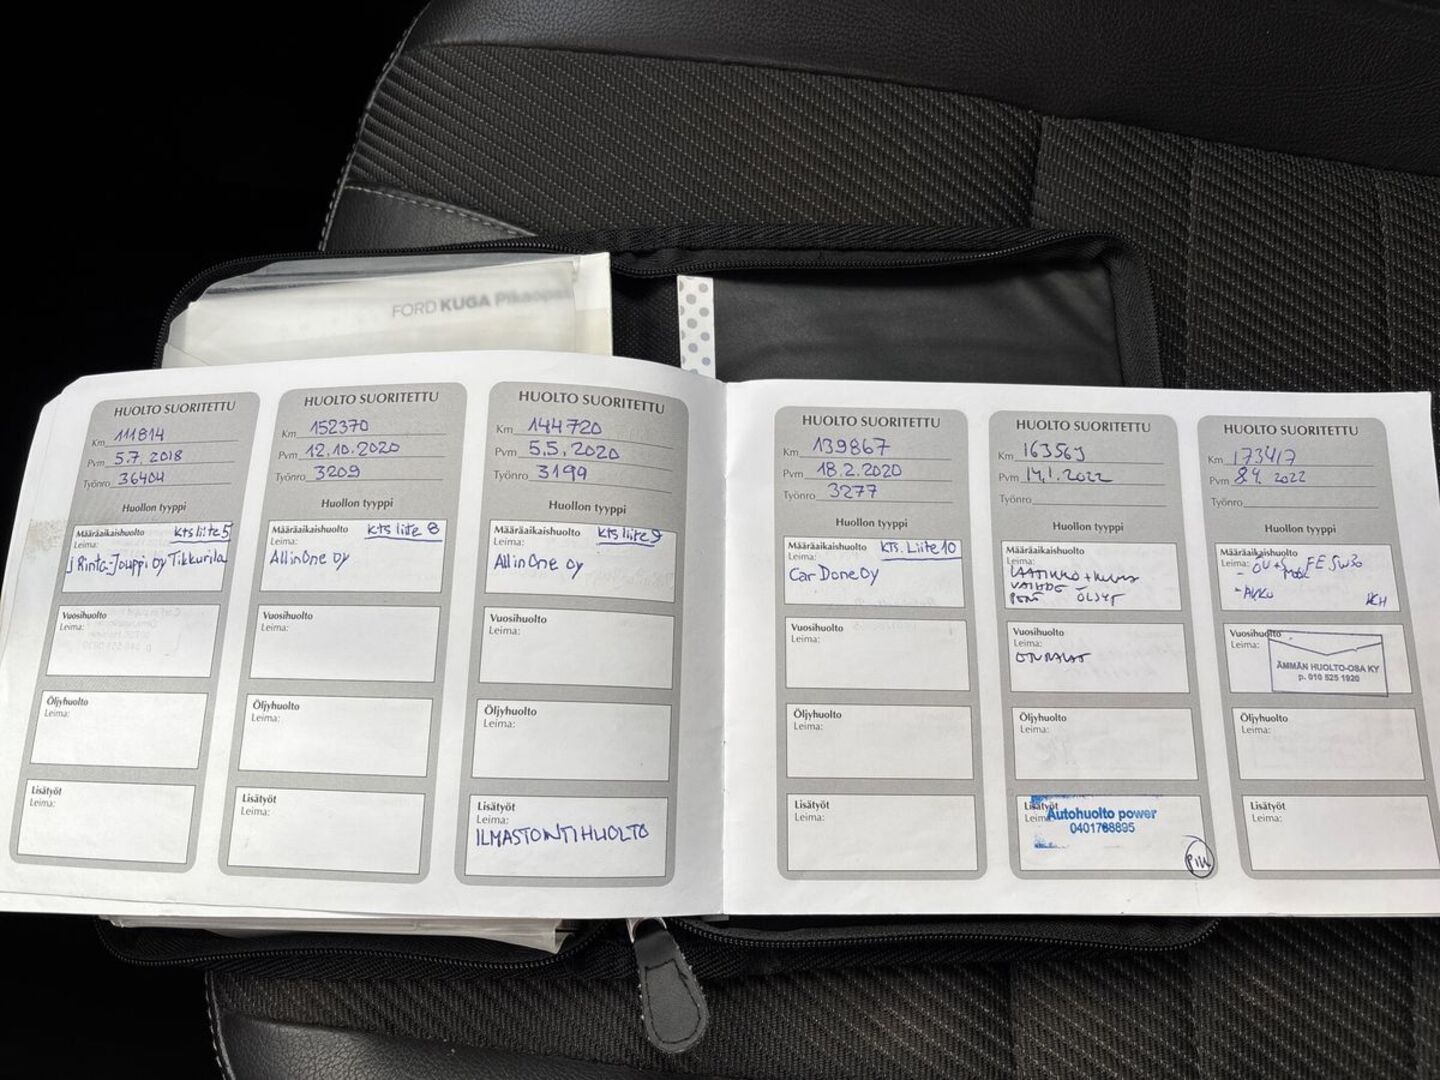 FORD KUGA Pikaopas
HUOLTO SUORITETTU
Km 111814
Pvm 5.7.2018
Työnro 36404
Huollon tyyppi
Määräaikaishuolto kts liite 5
Leima:
j Rinta-Jouppi Oy Tikkurila
Vuosihuolto
Leima:
Öljyhuolto
Leima:
Lisätyöt
Leima:
HUOLTO SUORITETTU
Km 152370
Pvm 12.10.2020
Työnro 3209
Huollon tyyppi
Määräaikaishuolto kts liite 8
Leima:
AllinOne oy
Vuosihuolto
Leima:
Öljyhuolto
Leima:
Lisätyöt
Leima:
HUOLTO SUORITETTU
Km 144720
Pvm 5.5.2020
Työnro 3199
Huollon tyyppi
Määräaikaishuolto kts liite 9
Leima:
AllinOne oy
Vuosihuolto
Leima:
Öljyhuolto
Leima:
Lisätyöt
Leima:
ILMASTOINTIHUOLTO
HUOLTO SUORITETTU
Km 139867
Pvm 18.2.2020
Työnro 3277
Huollon tyyppi
Määräaikaishuolto kts. Liite 10
Leima:
Car Done Oy
Vuosihuolto
Leima:
Öljyhuolto
Leima:
Lisätyöt
Leima:
HUOLTO SUORITETTU
Km 163563
Pvm 14.1.2022
Työnro
Huollon tyyppi
Määräaikaishuolto
Leima:
LAATIKKO +
VAIHDE
PERÄ ÖLJYT
Vuosihuolto
Leima:
ETUPALAT
Öljyhuolto
Leima:
Lisätyöt
Leima:
Autohuolto power
0401768895
HUOLTO SUORITETTU
Km 173417
Pvm 8.4. 2022
Työnro
Huollon tyyppi
Määräaikaishuolto
Leima: - ÖV+S FE 5W30
- AKKU
Vuosihuolto
Leima:
ÄMMÄN HUOLTO-OSA KY
p. 010 525 1920
Öljyhuolto
Leima:
Lisätyöt
Leima: